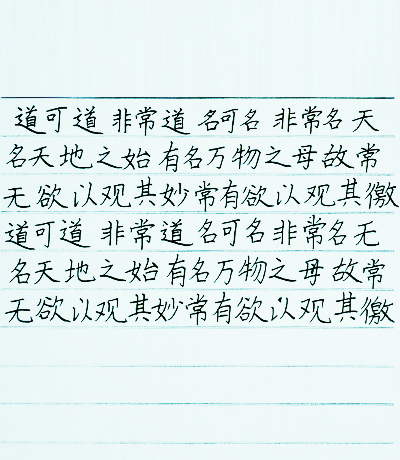 道可道 非常道 名可名 非常名 天
名天地之始 有名万物之母故常
无欲以观其妙常有欲以观其徼
道可道 非常道 名可名 非常名无
名天地之始 有名万物之母故常
无欲以观其妙常有欲以观其徼